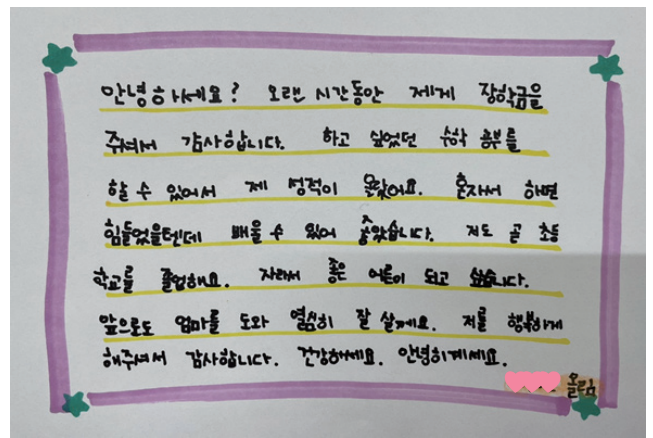 안녕하세요? 오랜 시간동안 제게 장학금을
주셔서 감사합니다. 하고 싶었던 수학 공부를
할 수 있어서 제 성적이 올랐어요. 혼자서 하면
힘들었을텐데 배울 수 있어 좋았습니다. 저도 곧 초등
학교를 졸업해요. 자라서 좋은 어른이 되고 싶습니다.
앞으로도 엄마를 도와 열심히 잘 살께요. 저를 행복하게
해주셔서 감사합니다. 건강하세요. 안녕히계세요.
올림